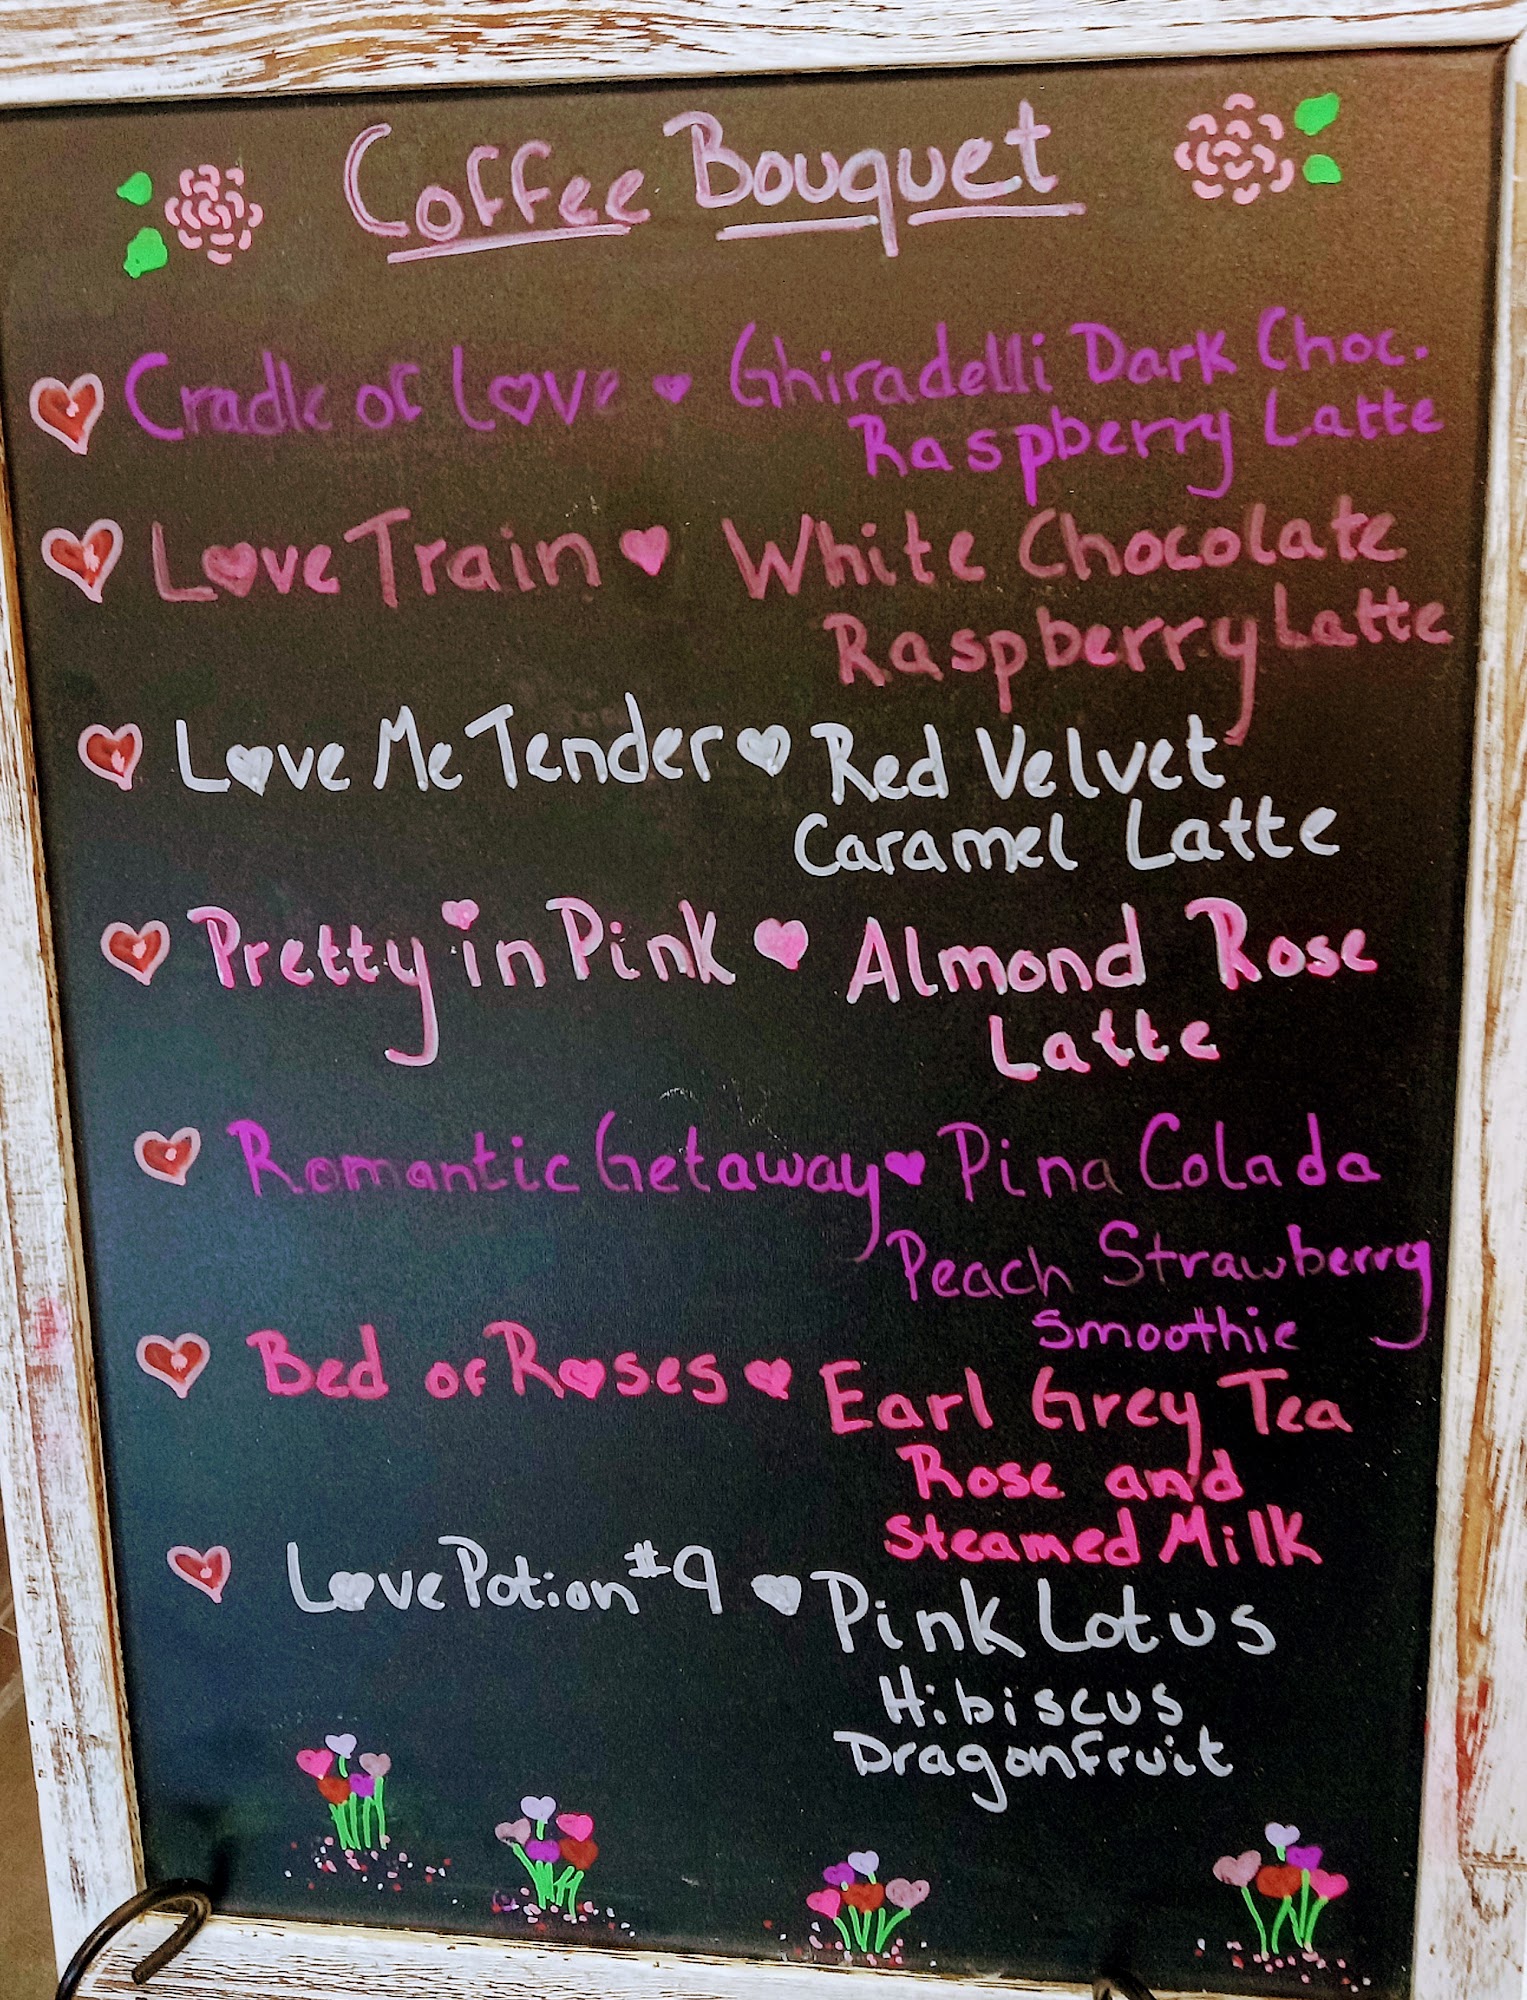 Coffee Bouquet
Cradle of Love Ghiradelli Dark Choc.
Raspberry Latte
Love Train White Chocolate
Raspberry Latte
Love Me Tender Red Velvet
Caramel Latte
Pretty in Pink Almond Rose
Latte
Romantic Getaway Pina Colada
Peach Strawberry
Smoothie
Bed of Roses Earl Grey Tea
Rose and
Steamed Milk
Love Potion #9 Pink Lotus
Hibiscus
Dragonfruit